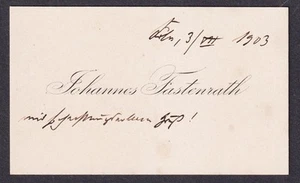 Köln, 3/VII 1903
Johannes Fastenrath
mit hochachtungsvollem Gruß!